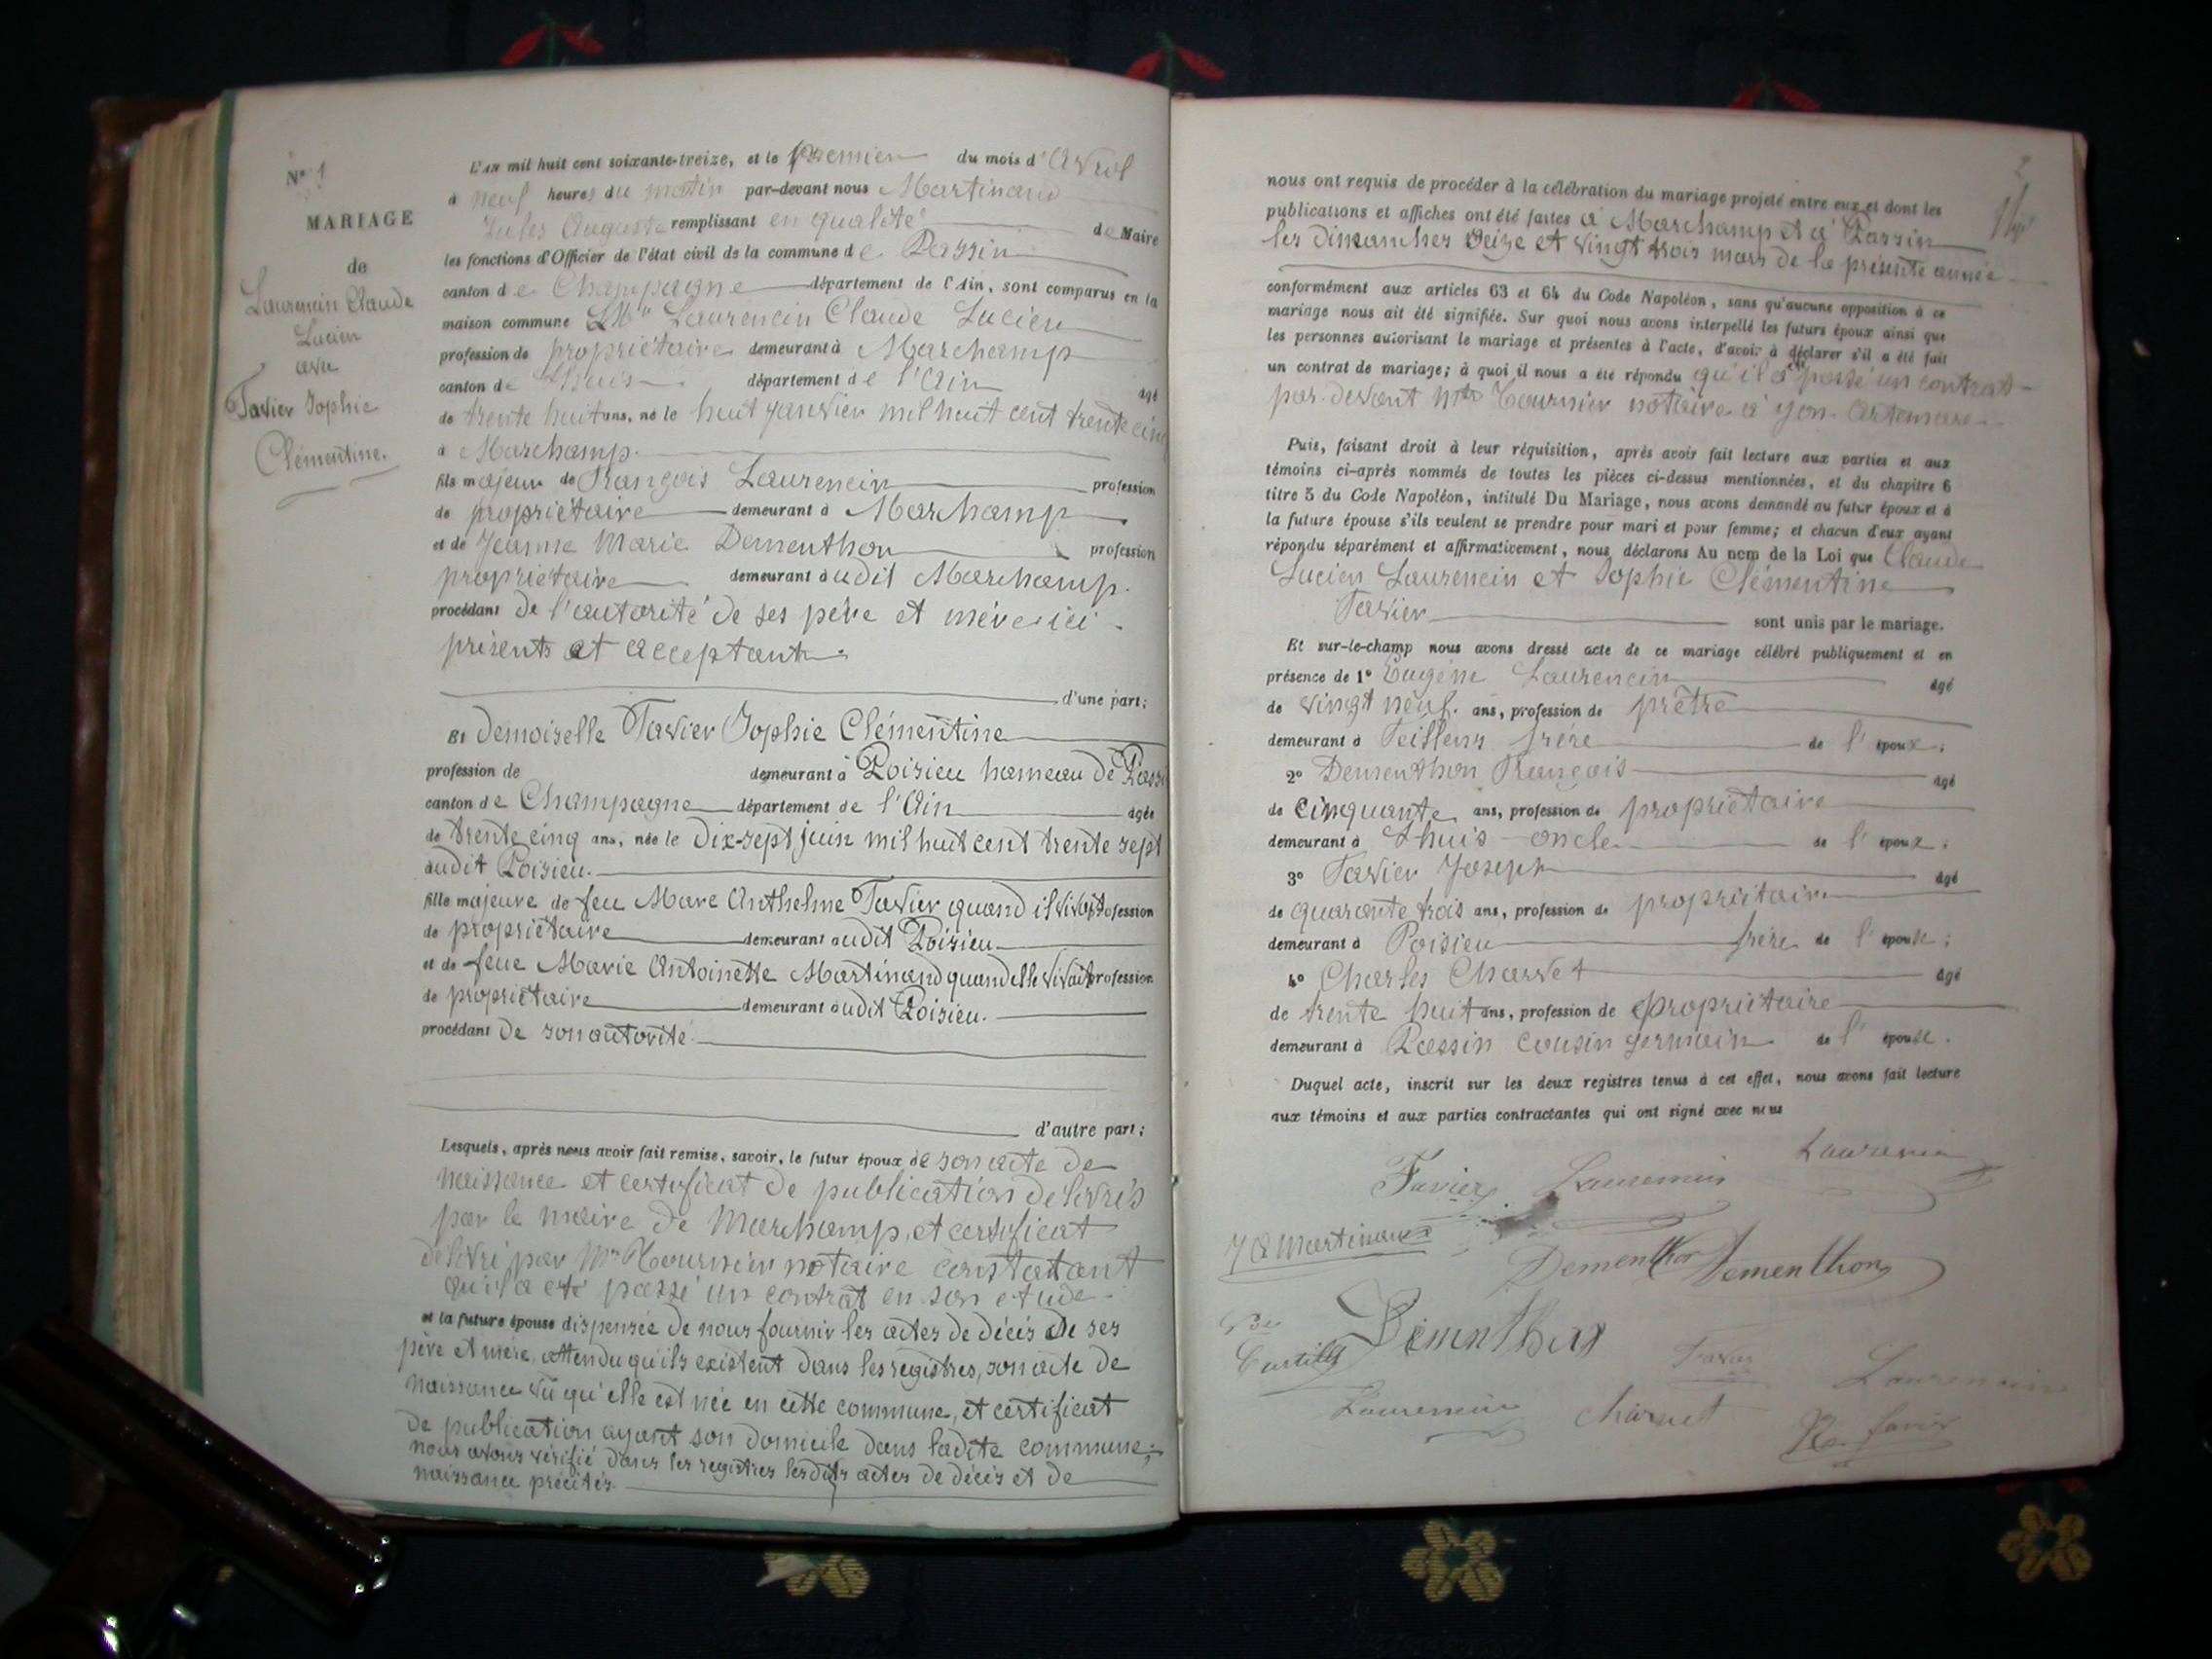 N° 1
MARIAGE
de
Laurencin Claude
Lucien
avec
Tavier Sophie
Clémentine.
L'AN mil huit cent soixante-treize, et le premier du mois d'Avril
à neuf heures du matin par-devant nous Martinand
Jules Auguste remplissant en qualité de Maire
les fonctions d'Officier de l'état civil de la commune de Passin
canton de Champagne département de l'Ain, sont comparus en la
maison commune Laurencin Claude Lucien
profession de propriétaire demeurant à Marchamp
canton de Lhuis département de l'Ain âgé
de trente huit ans, né le huit janvier mil huit cent trente cinq
à Marchamp
fils majeur de François Laurencin profession
de propriétaire demeurant à Marchamp
et de Jeanne Marie Dementhon profession
propriétaire demeurant audit Marchamp.
procédant de l'autorité de ses père et mère ici
présents et acceptant.
d'une part;
Et Demoiselle Tavier Sophie Clémentine
profession de demeurant à Poisieu hameau de Passi
canton de Champagne département de l'Ain âgée
de trente cinq ans, née le dix-sept juin mil huit cent trente sept
audit Poisieu.
fille majeure de feu Marc Anthelme Tavier quand il vivait profession
de propriétaire demeurant audit Poisieu
et de feue Marie Antoinette Martinand quand elle vivait profession
de propriétaire demeurant audit Poisieu.
procédant de son autorité
d'autre part;
Lesquels, après nous avoir fait remise, savoir, le futur époux de son acte de
naissance et certificat de publication délivrés
par le maire de Marchamp, et certificat
délivré par Mre Tournier notaire constatant
qu'il a été passé un contrat en son étude.
et la future épouse dispensée de nous fournir les actes de décès de ses
père et mère, attendu qu'ils existent dans les registres, son acte de
naissance vu qu'elle est née en cette commune, et certificat
de publication ayant son domicile dans ladite commune;
nous avons vérifié dans les registres lesdits actes de décès et de
naissance précités
2
nous ont requis de procéder à la célébration du mariage projeté entre eux et dont les
publications et affiches ont été faites à Marchamp et à Passin
les dimanches seize et vingt trois mars de la présente année
conformément aux articles 63 et 64 du Code Napoléon, sans qu'aucune opposition à ce
mariage nous ait été signifiée. Sur quoi nous avons interpellé les futurs époux ainsi que
les personnes autorisant le mariage et présentes à l'acte, d'avoir à déclarer s'il a été fait
un contrat de mariage; à quoi il nous a été répondu qu'il a été passé un contrat
par-devant Mtre Tournier notaire à Yon-Artemare.
Puis, faisant droit à leur réquisition, après avoir fait lecture aux parties et aux
témoins ci-après nommés de toutes les pièces ci-dessus mentionnées, et du chapitre 6
titre 5 du Code Napoléon, intitulé Du Mariage, nous avons demandé au futur époux et à
la future épouse s'ils veulent se prendre pour mari et pour femme; et chacun d'eux ayant
répondu séparément et affirmativement, nous déclarons Au nom de la Loi que Claude
Lucien Laurencin et Sophie Clémentine
Tavier sont unis par le mariage.
Et sur-le-champ nous avons dressé acte de ce mariage célébré publiquement et en
présence de 1° Eugène Laurencin âgé
de vingt neuf. ans, profession de prêtre
demeurant à Feillens frère de l'époux;
2° Dementhon François âgé
de cinquante ans, profession de propriétaire
demeurant à Lhuis oncle de l'époux;
3° Tavier Joseph âgé
de quarante trois ans, profession de propriétaire
demeurant à Poisieu frère de l'épouse;
4° Charles Charvet âgé
de trente huit ans, profession de propriétaire
demeurant à Passin cousin germain de l'épouse.
Duquel acte, inscrit sur les deux registres tenus à cet effet, nous avons fait lecture
aux témoins et aux parties contractantes qui ont signé avec nous
Tavier Laurencin Laurencin
J A Martinand
Dementhon Dementhon
Dementhon
Laurencin Charvet Laurencin